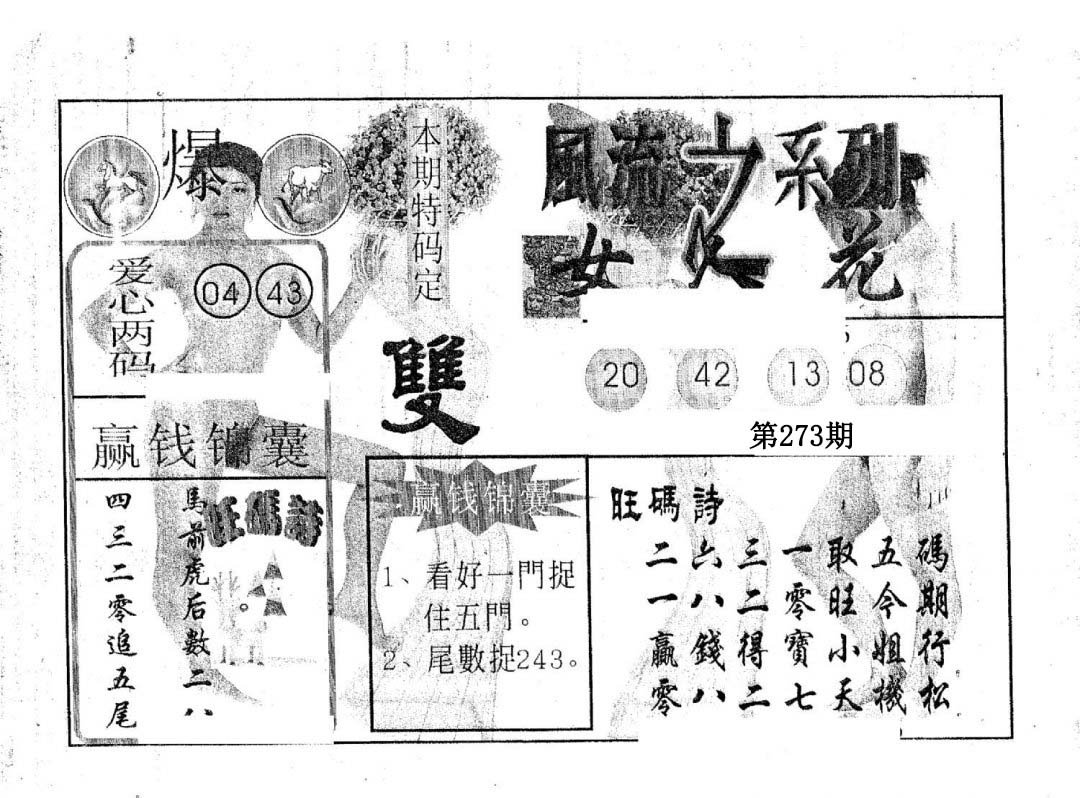 爆
爱心两码
04 43
赢钱锦囊
馬前虎后数二八
四三二零追五尾
旺碼詩
本期特码定
雙
赢钱锦囊
1、看好一門捉
住五門。
2、尾數捉243。
風流之系列
女人花
20 42 13 08
第273期
旺碼詩
碼期行松
五令姐機
取旺小天
一零寶七
三二得二
六八錢八
二一贏零